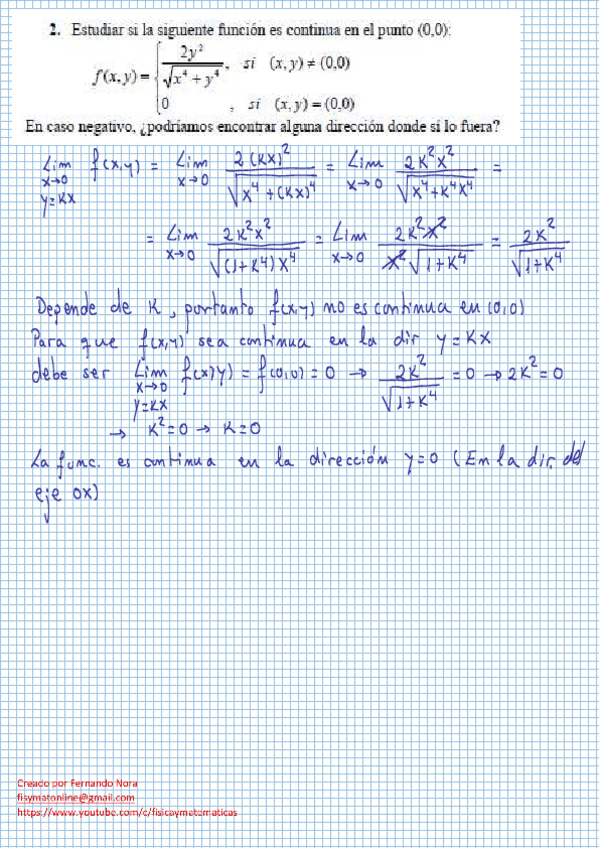 2. Estudiar si la siguiente función es continua en el punto (0,0):
f(x,y) = { 2y² / √(x⁴ + y⁴) , si (x,y) ≠ (0,0)
0 , si (x,y) = (0,0)
En caso negativo, ¿podríamos encontrar alguna dirección donde sí lo fuera?
Lim_{x→0, y=kx} f(x,y) = Lim_{x→0} 2(kx)² / √(x⁴ + (kx)⁴) = Lim_{x→0} 2k²x² / √(x⁴ + k⁴x⁴) =
= Lim_{x→0} 2k²x² / √((1+k⁴)x⁴) = Lim_{x→0} 2k²x² / x²√(1+k⁴) = 2k² / √(1+k⁴)
Depende de k, portanto f(x,y) no es continua en (0,0)
Para que f(x,y) sea continua en la dir y=kx
debe ser Lim_{x→0, y=kx} f(x,y) = f(0,0) = 0 → 2k² / √(1+k⁴) = 0 → 2k² = 0
→ k² = 0 → k = 0
La func. es continua en la dirección y=0 (En la dir. del
eje ox)
Creado por Fernando Nora
fisymatonline@gmail.com
https://www.youtube.com/c/fisicaymatematicas